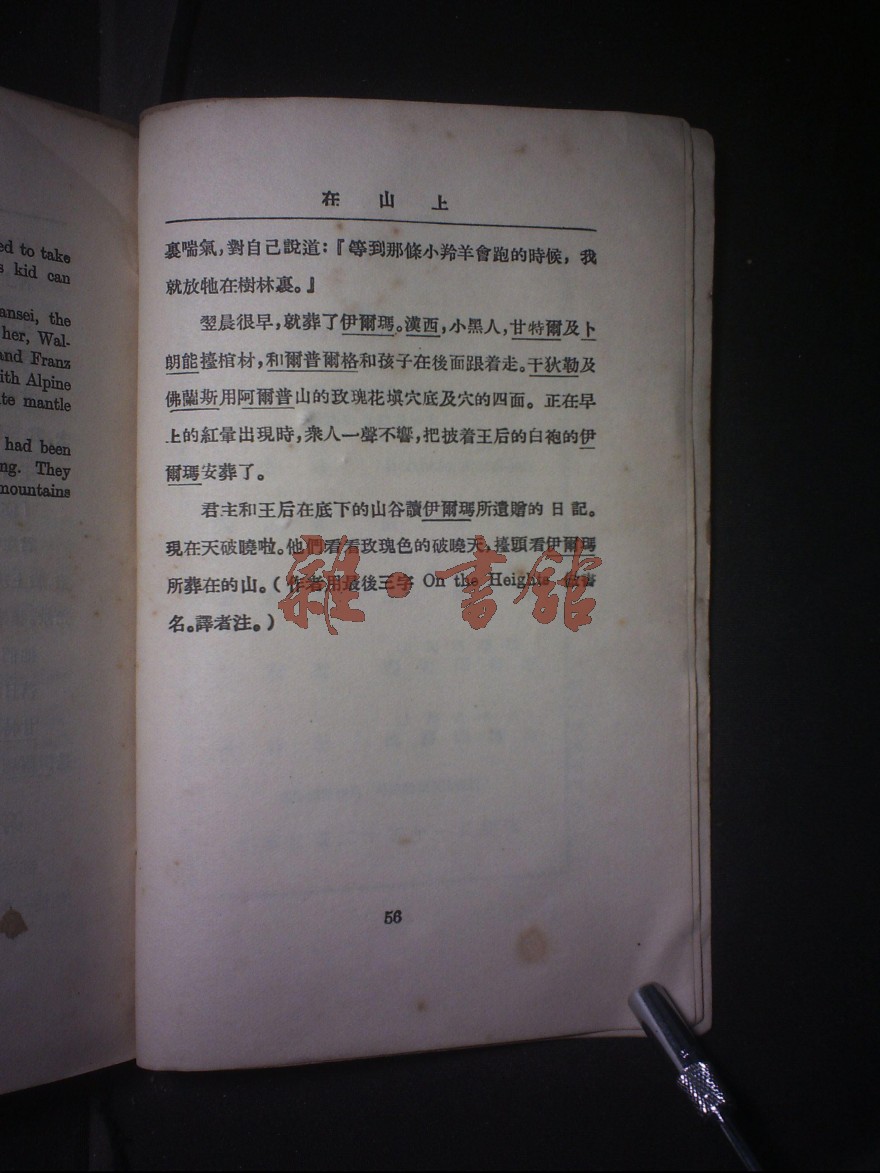 ed to take
s kid can
ansei, the
her, Wal-
and Franz
ith Alpine
te mantle
had been
ng. They
mountains
在山上
裏喘氣，對自己說道：『等到那條小羚羊會跑的時候，我
就放牠在樹林裏。』
翌晨很早，就葬了伊爾瑪。漢西，小黑人，甘特爾及卜
朗能擡棺材，和爾普爾格和孩子在後面跟着走。干狄勒及
佛蘭斯用阿爾普山的玫瑰花填穴底及穴的四面。正在早
上的紅暈出現時，衆人一聲不響，把披着王后的白袍的伊
爾瑪安葬了。
君主和王后在底下的山谷讀伊爾瑪所遺贈的日記。
現在天破曉啦。他們看看玫瑰色的破曉天，擡頭看伊爾瑪
所葬在的山。（作者用最後三字 On the Heights 做書
名。譯者注。）
雜·書館
56